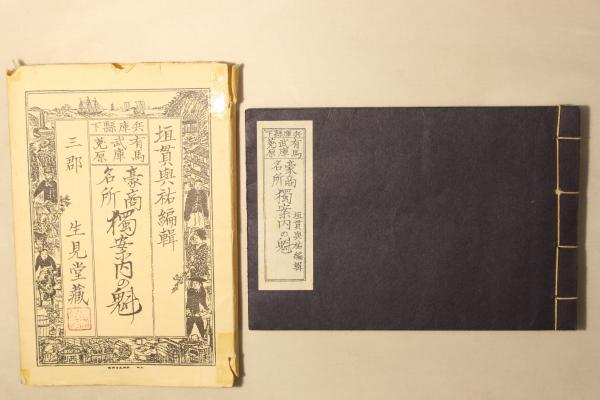 兵庫縣下
有馬
武庫
菟原
三郡
豪商
名所
獨案内の魁
垣貫與祐編輯
生見堂藏
兵庫縣下
有馬
武庫
菟原
豪商
名所
獨案内の魁
垣貫與祐編輯